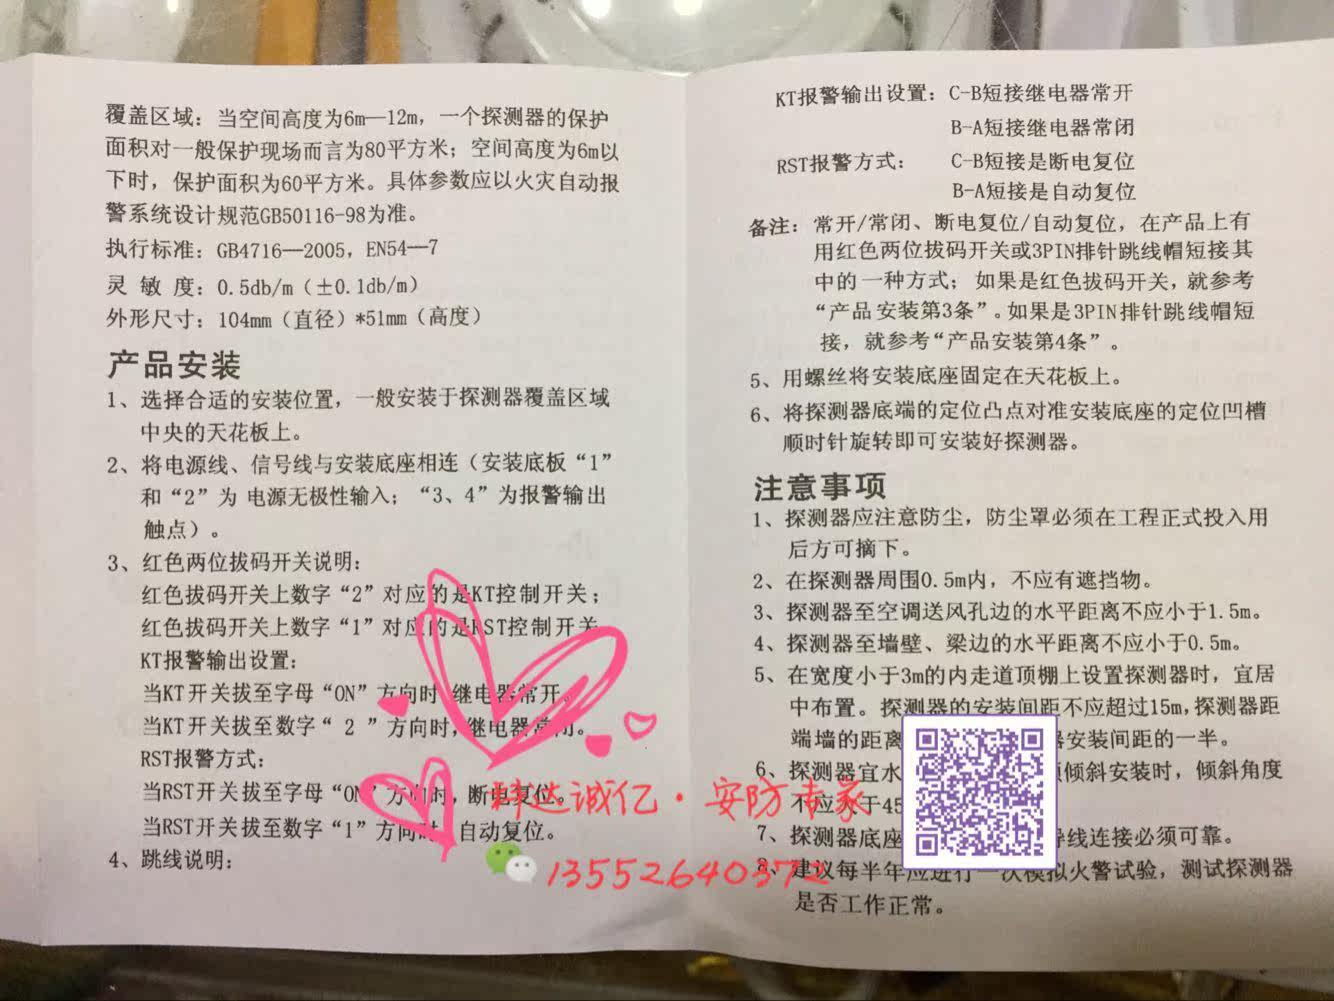 覆盖区域：当空间高度为6m—12m，一个探测器的保护
面积对一般保护现场而言为80平方米；空间高度为6m以
下时，保护面积为60平方米。具体参数应以火灾自动报
警系统设计规范GB50116-98为准。
执行标准：GB4716—2005，EN54—7
灵 敏 度：0.5db/m（±0.1db/m）
外形尺寸：104mm（直径）*51mm（高度）
产品安装
1、选择合适的安装位置，一般安装于探测器覆盖区域
中央的天花板上。
2、将电源线、信号线与安装底座相连（安装底板“1”
和“2”为 电源无极性输入；“3、4”为报警输出
触点）。
3、红色两位拔码开关说明：
红色拔码开关上数字“2”对应的是KT控制开关；
红色拔码开关上数字“1”对应的是RST控制开关
KT报警输出设置：
当KT开关拔至字母“ON”方向时，继电器常开。
当KT开关拔至数字“ 2 ”方向时，继电器常闭。
RST报警方式：
当RST开关拔至字母“ON”方向时，断电复位。
当RST开关拔至数字“1”方向时，自动复位。
4、跳线说明：
KT报警输出设置：C-B短接继电器常开
B-A短接继电器常闭
RST报警方式： C-B短接是断电复位
B-A短接是自动复位
备注：常开/常闭、断电复位/自动复位，在产品上有
用红色两位拔码开关或3PIN排针跳线帽短接其
中的一种方式；如果是红色拔码开关，就参考
“产品安装第3条”。如果是3PIN排针跳线帽短
接，就参考“产品安装第4条”。
5、用螺丝将安装底座固定在天花板上。
6、将探测器底端的定位凸点对准安装底座的定位凹槽
顺时针旋转即可安装好探测器。
注意事项
1、探测器应注意防尘，防尘罩必须在工程正式投入用
后方可摘下。
2、在探测器周围0.5m内，不应有遮挡物。
3、探测器至空调送风孔边的水平距离不应小于1.5m。
4、探测器至墙壁、梁边的水平距离不应小于0.5m。
5、在宽度小于3m的内走道顶棚上设置探测器时，宜居
中布置。探测器的安装间距不应超过15m，探测器距
端墙的距离 器安装间距的一半。
6、探测器宜水 倾斜安装时，倾斜角度
不应大于45
7、探测器底座 导线连接必须可靠。
8、建议每半年应进行一次模拟火警试验，测试探测器
是否工作正常。
科达诚亿·安防专家
13552640372